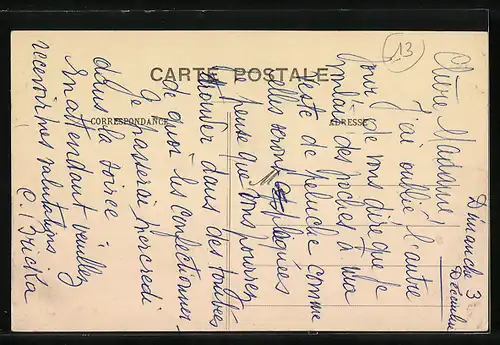 CARTE POSTALE
CORRESPONDANCE
ADRESSE
13
Dimanche 3
Décembre
Chère Madame,
J'ai oublié l'autre
jour de vous dire que je
voulais des poches à ma
veste de peluche comme
elles seront appliquées
je pense que vous pourrez
trouver dans des tombées
de quoi les confectionner.
Je passerai mercredi
dans la soirée
En attendant veuillez
recevoir mes salutations
C. Bricka